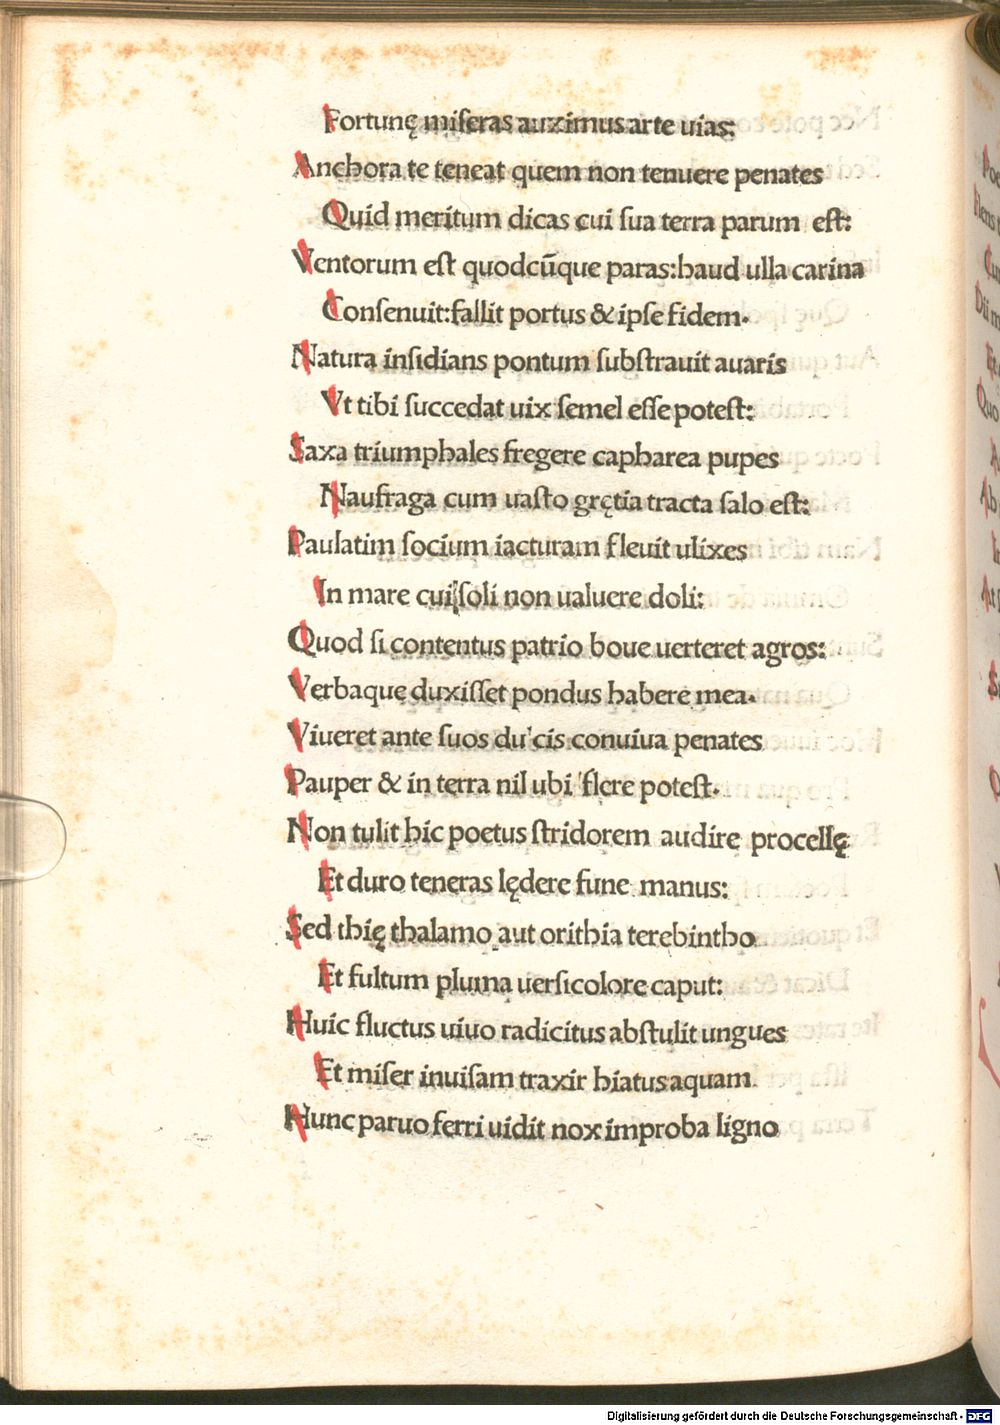 Fortunę miſeras auximus arte uias:
Anchora te teneat quem non tenuere penates
Quid meritum dicas cui ſua terra parum eſt:
Ventorum eſt quodcūque paras:haud ulla carina
Conſenuit:fallit portus & ipſe fidem.
Natura inſidians pontum ſubſtrauit auaris
Vt tibi ſuccedat uix ſemel eſſe poteſt:
Saxa triumphales fregere capharea pupes
Naufraga cum uaſto gręcia tracta ſalo eſt:
Paulatim ſocium iacturam fleuit ulixes
In mare cui ſoli non ualuere doli:
Quod ſi contentus patrio boue uerteret agros:
Verbaque duxiſſet pondus habere mea.
Viueret ante ſuos dulcis conuiua penates
Pauper & in terra nil ubi flere poteſt.
Non tulit hic poetus ſtridorem audire procellę
Et duro teneras lędere fune manus:
Sed thię thalamo aut orithia terebintho
Et fultum pluma uerſicolore caput:
Huic fluctus uiuo radicitus abſtulit ungues
Et miſer inuiſam traxir hiatus aquam
Hunc paruo ferri uidit nox improba ligno
Digitalisierung gefördert durch die Deutsche Forschungsgemeinschaft - DFG